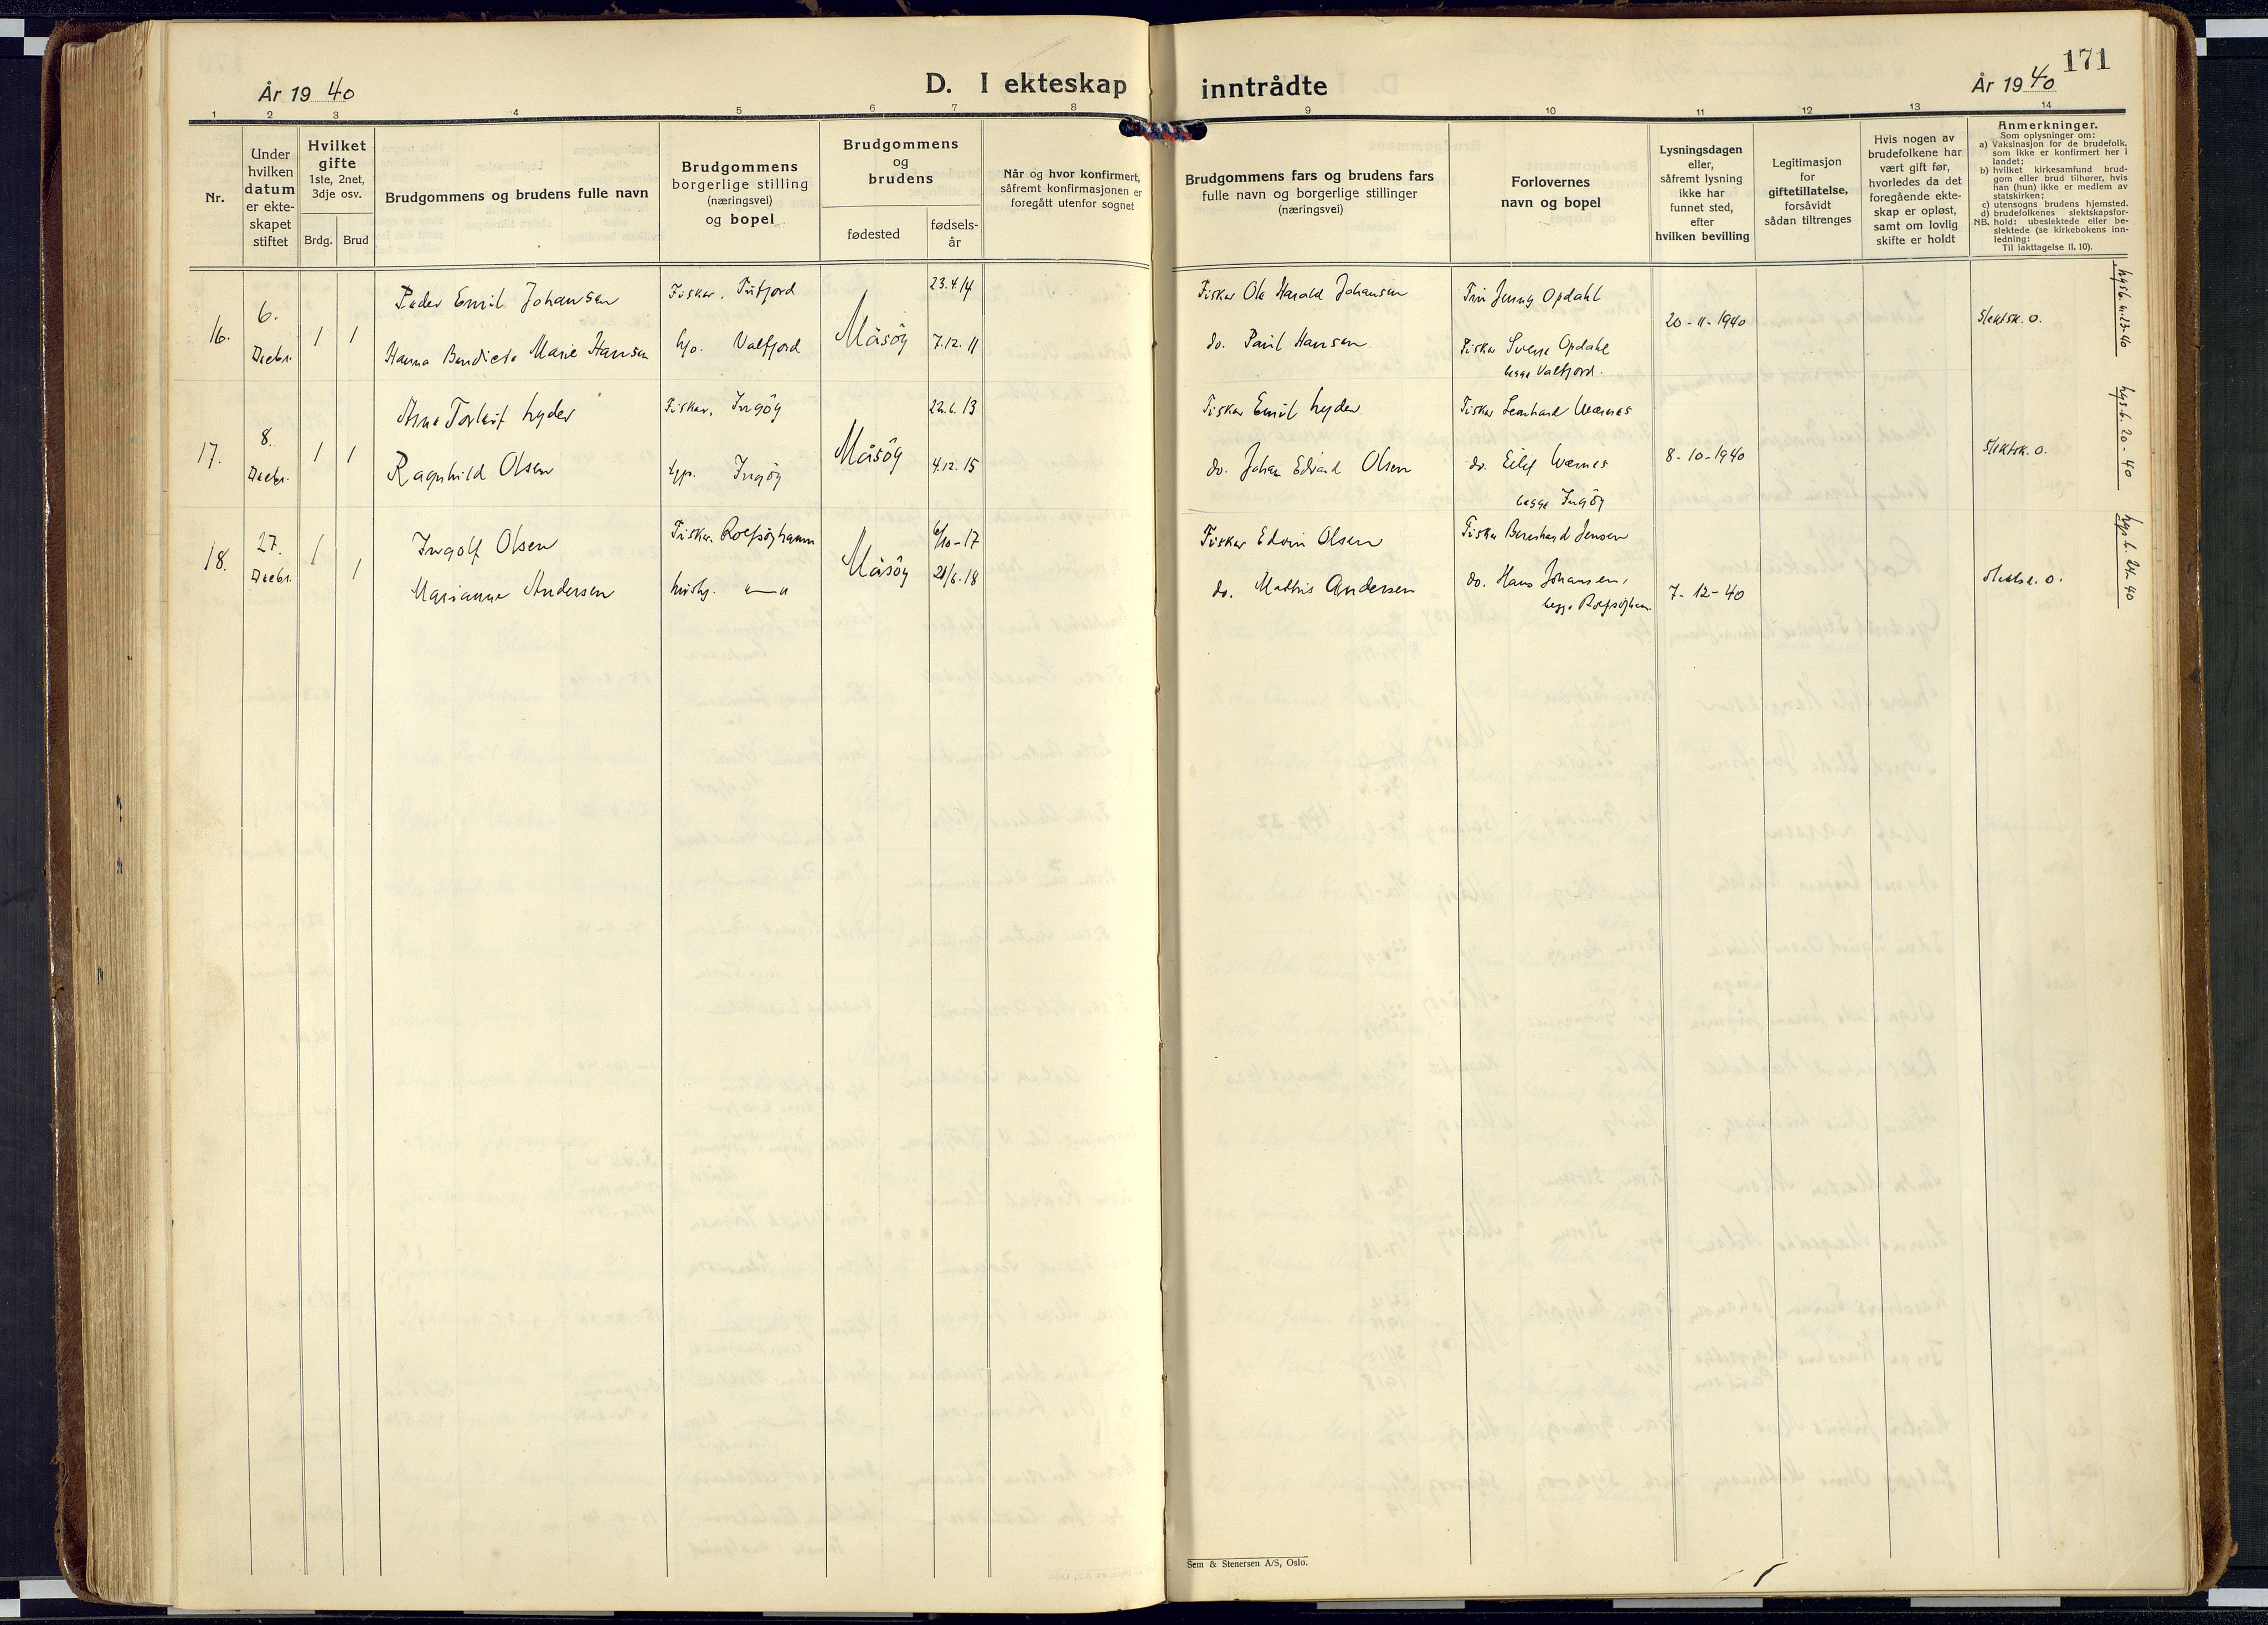 171
År 1940
D. I ekteskap inntrådte
År 1940
1 2 3 4 5 6 7 8 9 10 11 12 13 14
Nr.
Under hvilken datum er ekteskapet stiftet
Hvilket gifte
1ste, 2net, 3dje osv.
Brdg. Brud
Brudgommens og brudens fulle navn
Brudgommens borgerlige stilling
(næringsvei)
og bopel
Brudgommens og brudens
fødested
fødselsår
Når og hvor konfirmert,
såfremt konfirmasjonen er
foregått utenfor sognet
Brudgommens fars og brudens fars
fulle navn og borgerlige stillinger
(næringsvei)
Forlovernes
navn og bopel
Lysningsdagen
eller,
såfremt lysning
ikke har
funnet sted,
efter
hvilken bevilling
Legitimasjon
for
giftetillatelse,
forsåvidt
sådan tiltrenges
Hvis nogen av
brudefolkene har
vært gift før,
hvorledes da det
foregående ekte-
skap er opløst,
samt om lovlig
skifte er holdt
Anmerkninger.
Som oplysninger om:
a) Vaksinasjon for de brudefolk,
som ikke er konfirmert her i
landet;
b) hvilket kirkesamfund brud-
gom eller brud tilhører, hvis
han (hun) ikke er medlem av
statskirken;
c) utensogns brudens hjemsted.
d) brudefolkenes slektskapsfor-
hold: ubeslektede eller be-
slektede (se kirkebokens inn-
ledning:
NB. Til iakttagelse II. 10).
16. 6. Decbr. 1 1
Peder Emil Johansen Fisker, Tufjord Måsöy 23.4.14
Fisker Ole Harald Johansen
Fru Jenny Opdahl
20-11-1940
Slektsk. o.
Hanna Bendicte Marie Hansen Valfjord 7.12.11
do. Paul Hansen
Fisker Sverre Opdahl
begge Valfjord.
17. 8. Decbr. 1 1
Arne Torleif Lyder Fisker, Ingöy Måsöy 22.6.13
Fisker Emil Lyder
Fisker Leonhard Wærnes
8-10-1940
Slektsk. o.
Ragnhild Olsen Ingöy 4.12.15
do. Johan Edvard Olsen
do. Eilif Wærnes
begge Ingöy
18. 27. Decbr. 1 1
Ingolf Olsen Fisker. Rolfsöyhamn Måsöy 6/10-17
Fisker Edvin Olsen
Fisker Bernhard Jensen
Marianne Andersen 21/6-18
do. Mathis Andersen
do. Hans Johansen,
begge Rolfsöyham.
7-12-40
Slektsk. o.
Sem & Stenersen A/S, Oslo.